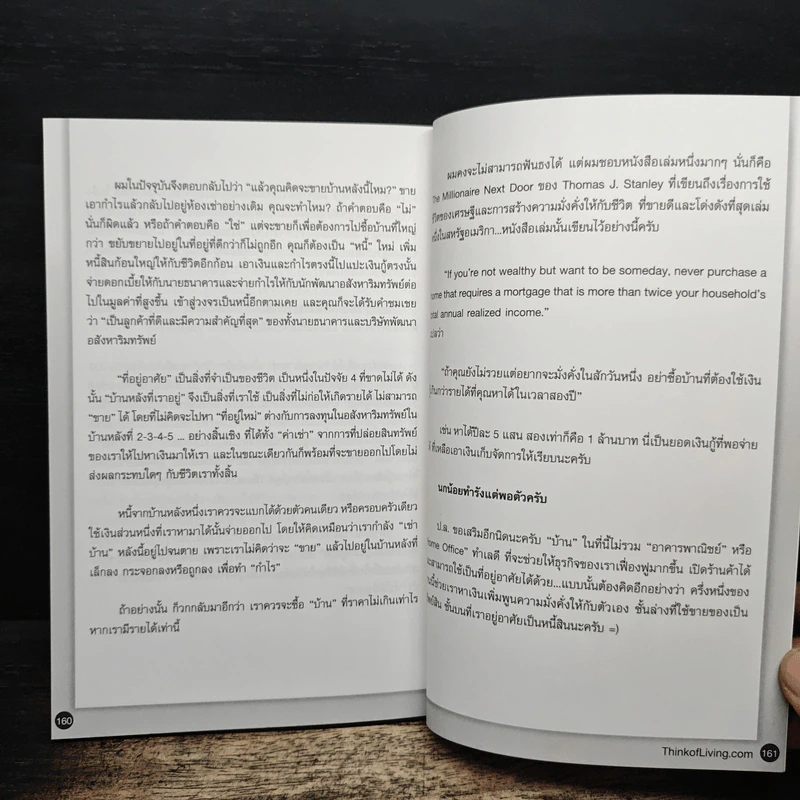 ผมในปัจจุบันจึงตอบกลับไปว่า “แล้วคุณคิดจะขายบ้านหลังนี้ไหม?” ขาย
เอากำไรแล้วกลับไปอยู่ห้องเช่าอย่างเดิม คุณจะทำไหม? ถ้าคำตอบคือ “ไม่”
นั่นก็ผิดแล้ว หรือถ้าคำตอบคือ “ใช่” แต่จะขายก็เพื่อต้องการไปซื้อบ้านที่ใหญ่
กว่า ขยับขยายไปอยู่ในที่อยู่ที่ดีกว่าก็ไม่ถูกอีก คุณก็ต้องเป็น “หนี้” ใหม่ เพิ่ม
หนี้สินก้อนใหญ่ให้กับชีวิตอีกก้อน เอาเงินและกำไรตรงนี้ไปแปะเงินกู้ตรงนั้น
จ่ายดอกเบี้ยให้กับนายธนาคารและจ่ายกำไรให้กับนักพัฒนาอสังหาริมทรัพย์ต่อ
ไปในมูลค่าที่สูงขึ้น เข้าสู่วงจรเป็นหนี้อีกตามเคย และคุณก็จะได้รับคำชมเชย
ว่า “เป็นลูกค้าที่ดีและมีความสำคัญที่สุด” ของทั้งนายธนาคารและบริษัทพัฒนา
อสังหาริมทรัพย์
“ที่อยู่อาศัย” เป็นสิ่งที่จำเป็นของชีวิต เป็นหนึ่งในปัจจัย 4 ที่ขาดไม่ได้ ดัง
นั้น “บ้านหลังที่เราอยู่” จึงเป็นสิ่งที่เราใช้ เป็นสิ่งที่ไม่ก่อให้เกิดรายได้ ไม่สามารถ
“ขาย” ได้ โดยที่ไม่คิดจะไปหา “ที่อยู่ใหม่” ต่างกับการลงทุนในอสังหาริมทรัพย์ใน
บ้านหลังที่ 2-3-4-5 ... อย่างสิ้นเชิง ที่ได้ทั้ง “ค่าเช่า” จากการที่ปล่อยสินทรัพย์
ของเราให้ไปหาเงินมาให้เรา และในขณะเดียวกันก็พร้อมที่จะขายออกไปโดยไม่
ส่งผลกระทบใดๆ กับชีวิตเราทั้งสิ้น
หนี้จากบ้านหลังหนึ่งเราควรจะแบกได้ด้วยตัวคนเดียว หรือครอบครัวเดียว
ใช้เงินส่วนหนึ่งที่เราหามาได้นั้นจ่ายออกไป โดยให้คิดเหมือนว่าเรากำลัง “เช่า
บ้าน” หลังนี้อยู่ไปจนตาย เพราะเราไม่คิดว่าจะ “ขาย” แล้วไปอยู่ในบ้านหลังที่
เล็กลง กระจอกลงหรือถูกลง เพื่อทำ “กำไร”
ถ้าอย่างนั้น ก็วกกลับมาอีกว่า เราควรจะซื้อ “บ้าน” ที่ราคาไม่เกินเท่าไร
หากเรามีรายได้เท่านี้
160
ผมคงจะไม่สามารถฟันธงได้ แต่ผมชอบหนังสือเล่มหนึ่งมากๆ นั่นก็คือ
The Millionaire Next Door ของ Thomas J. Stanley ที่เขียนถึงเรื่องการใช้
ชีวิตของเศรษฐีและการสร้างความมั่งคั่งให้กับชีวิต ที่ขายดีและโด่งดังที่สุดเล่ม
หนึ่งในสหรัฐอเมริกา...หนังสือเล่มนั้นเขียนไว้อย่างนี้ครับ
“If you’re not wealthy but want to be someday, never purchase a
home that requires a mortgage that is more than twice your household’s
total annual realized income.”
แปลว่า
“ถ้าคุณยังไม่รวยแต่อยากจะมั่งคั่งในสักวันหนึ่ง อย่าซื้อบ้านที่ต้องใช้เงิน
กู้เกินกว่ารายได้ที่คุณหาได้ในเวลาสองปี”
เช่น หาได้ปีละ 5 แสน สองเท่าก็คือ 1 ล้านบาท นี่เป็นยอดเงินกู้ที่พอจ่าย
ได้ ที่เหลือเอาเงินเก็บจัดการให้เรียบนะครับ
นกน้อยทำรังแต่พอตัวครับ
ป.ล. ขอเสริมอีกนิดนะครับ “บ้าน” ในที่นี้ไม่รวม “อาคารพาณิชย์” หรือ
“Home Office” ทำเลดี ที่จะช่วยให้ธุรกิจของเราเฟื่องฟูมากขึ้น เปิดร้านค้าได้
สามารถใช้เป็นที่อยู่อาศัยได้ด้วย...แบบนั้นต้องคิดอีกอย่างว่า ครึ่งหนึ่งของ
นี้ช่วยเราหาเงินเพิ่มพูนความมั่งคั่งให้กับตัวเอง ชั้นล่างที่ใช้ขายของเป็น
ทรัพย์สิน ชั้นบนที่เราอยู่อาศัยเป็นหนี้สินนะครับ =)
ThinkofLiving.com
161